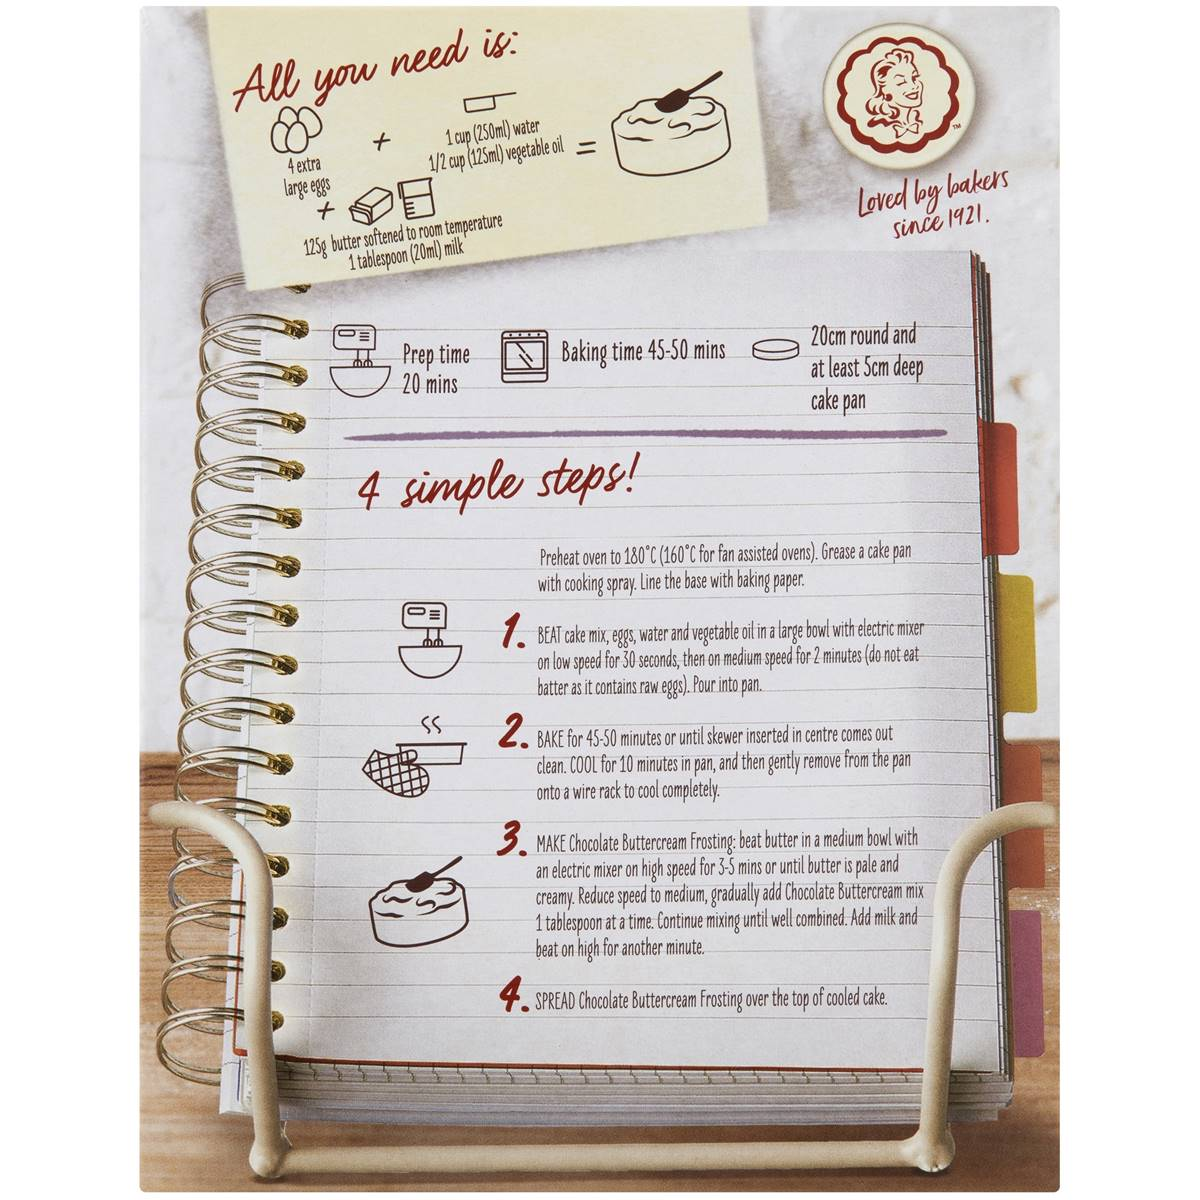 All you need is:
4 extra
large eggs
+
1 cup (250ml) water
1/2 cup (125ml) vegetable oil
=
+
125g butter softened to room temperature
1 tablespoon (20ml) milk
TM
Loved by bakers
since 1921.
Prep time
20 mins
Baking time 45-50 mins
20cm round and
at least 5cm deep
cake pan
4 simple steps!
Preheat oven to 180°C (160°C for fan assisted ovens). Grease a cake pan
with cooking spray. Line the base with baking paper.
1. BEAT cake mix, eggs, water and vegetable oil in a large bowl with electric mixer
on low speed for 30 seconds, then on medium speed for 2 minutes (do not eat
batter as it contains raw eggs). Pour into pan.
2. BAKE for 45-50 minutes or until skewer inserted in centre comes out
clean. COOL for 10 minutes in pan, and then gently remove from the pan
onto a wire rack to cool completely.
3. MAKE Chocolate Buttercream Frosting: beat butter in a medium bowl with
an electric mixer on high speed for 3-5 mins or until butter is pale and
creamy. Reduce speed to medium, gradually add Chocolate Buttercream mix
1 tablespoon at a time. Continue mixing until well combined. Add milk and
beat on high for another minute.
4. SPREAD Chocolate Buttercream Frosting over the top of cooled cake.